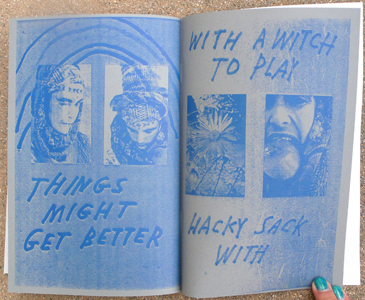 THINGS
MIGHT
GET BETTER
WITH A WITCH
TO PLAY
HACKY SACK
WITH